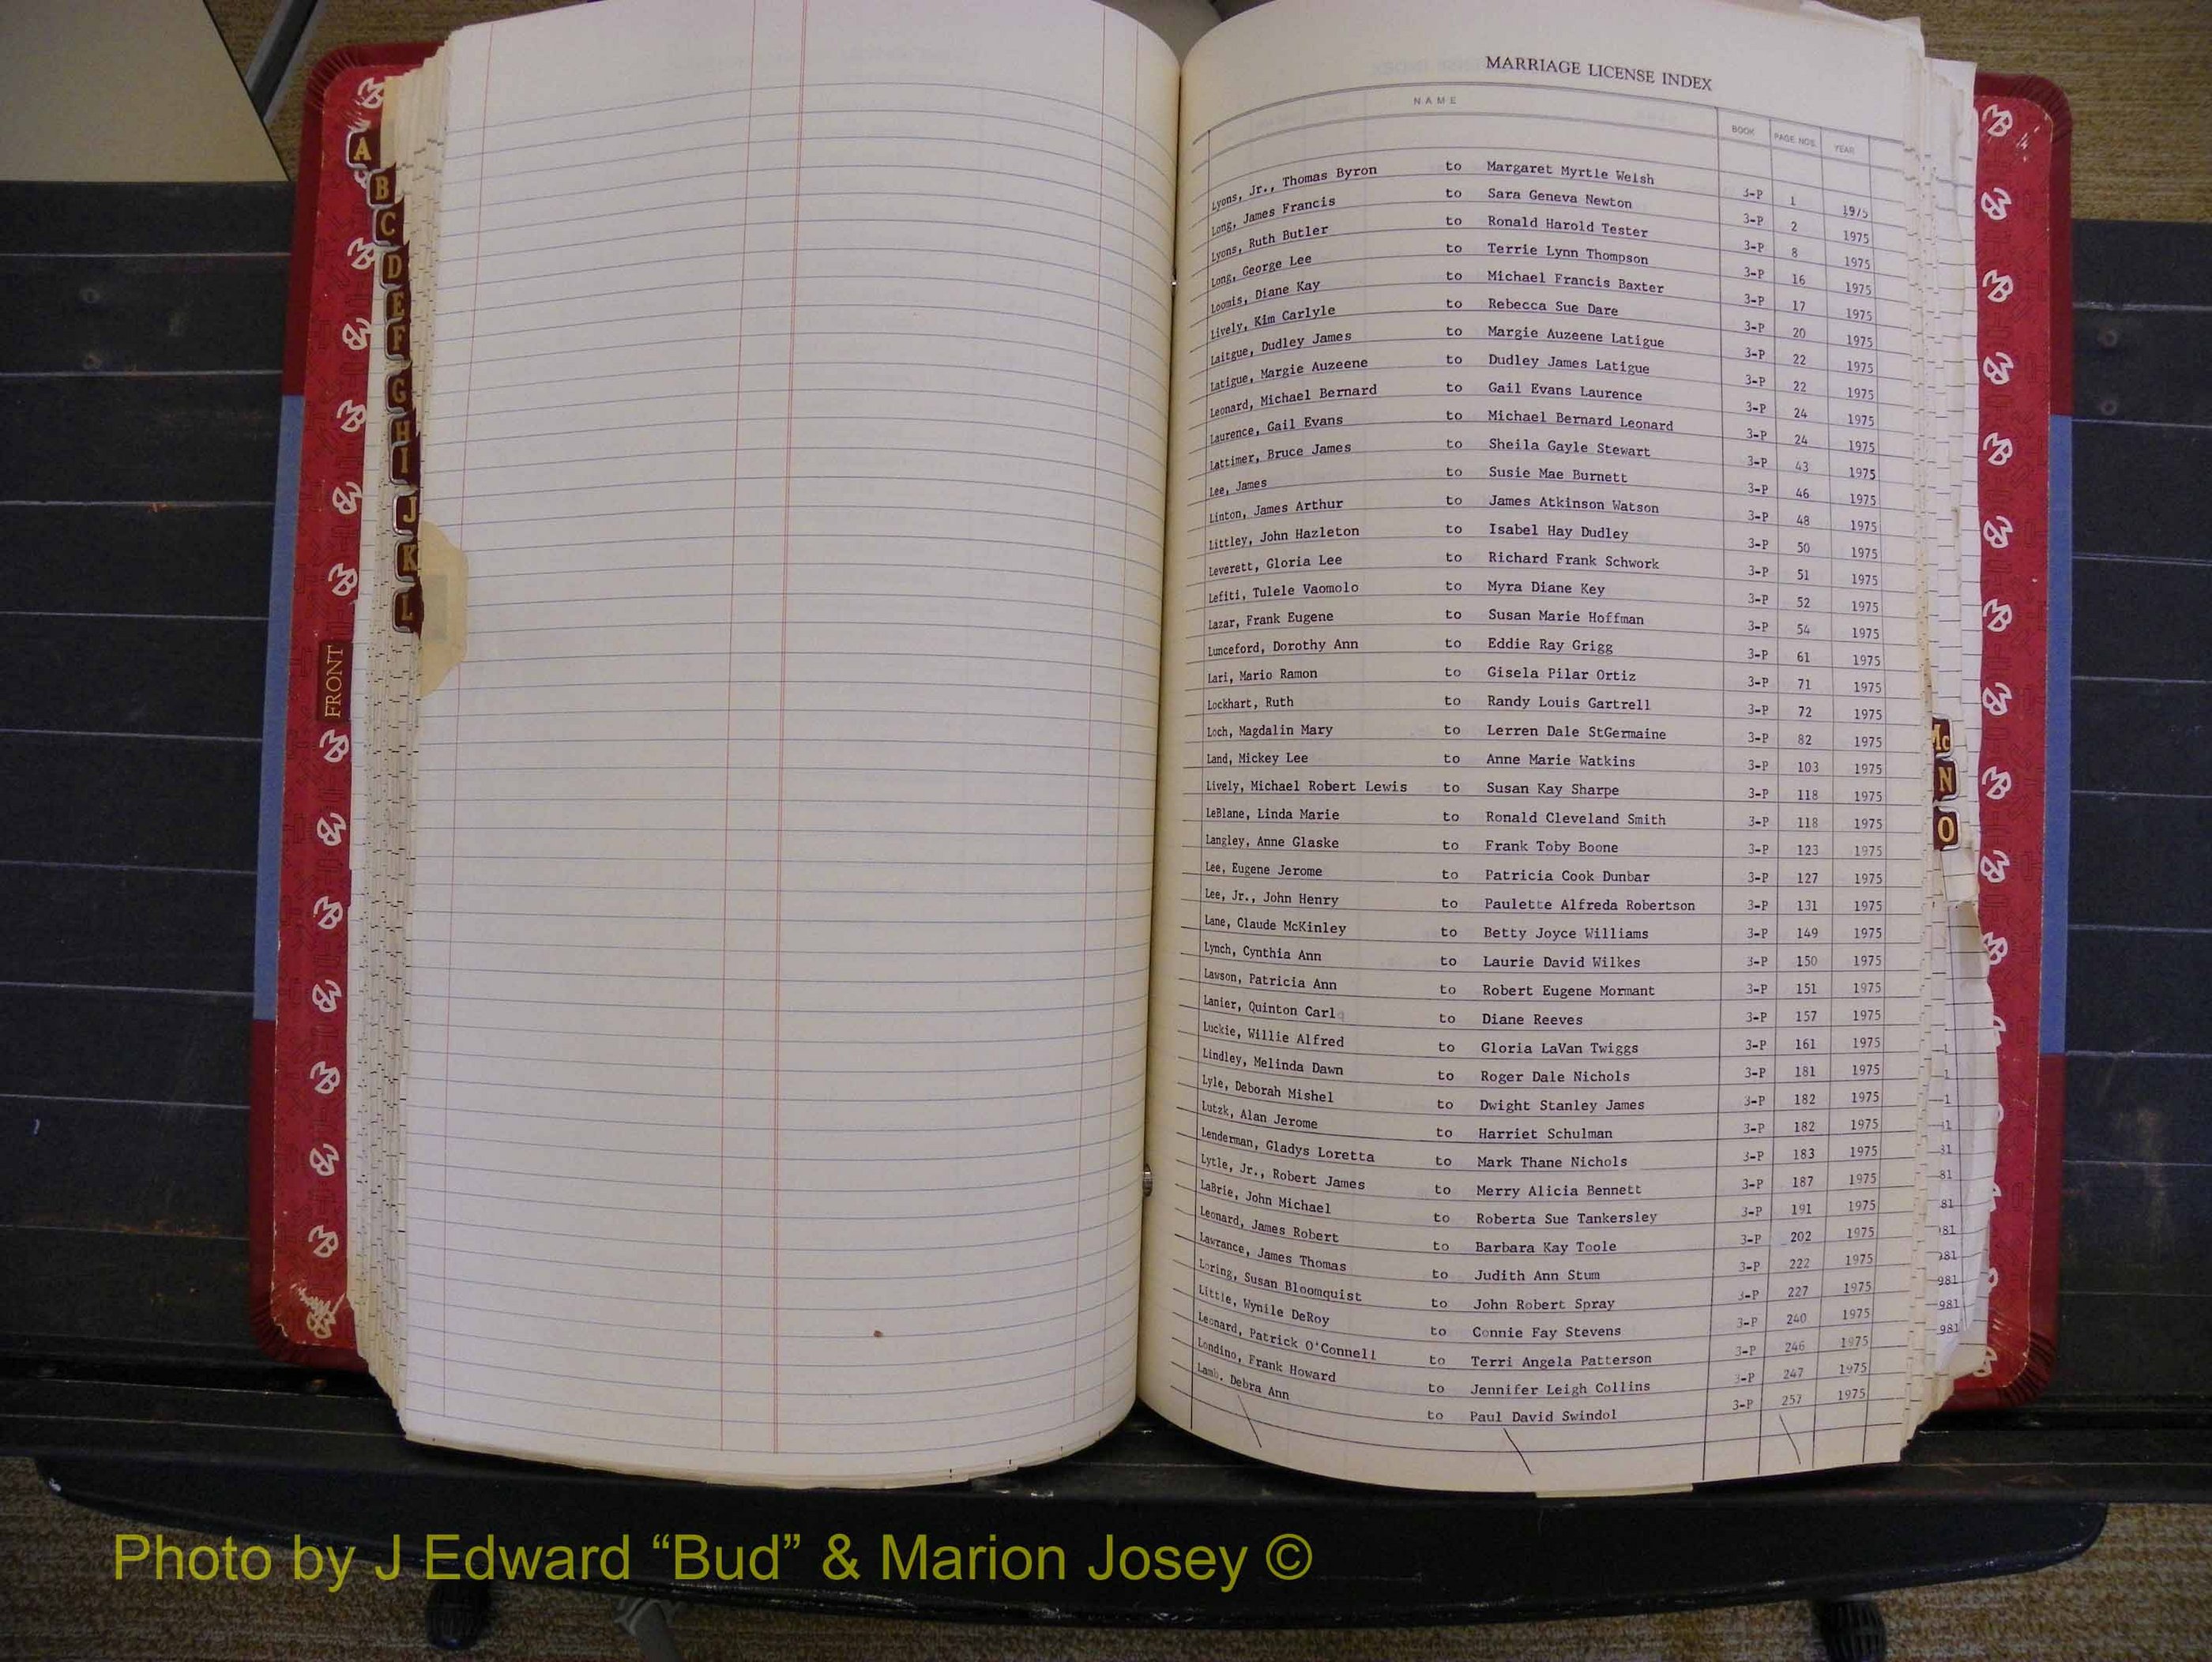 MARRIAGE LICENSE INDEX
NAME BOOK PAGE NOS. YEAR
Lyons, Jr., Thomas Byron to Margaret Myrtle Welsh 3-P 1 1975
Long, James Francis to Sara Geneva Newton 3-P 2 1975
Lyons, Ruth Butler to Ronald Harold Tester 3-P 8 1975
Long, George Lee to Terrie Lynn Thompson 3-P 16 1975
Loomis, Diane Kay to Michael Francis Baxter 3-P 17 1975
Lively, Kim Carlyle to Rebecca Sue Dare 3-P 20 1975
Laitgue, Dudley James to Margie Auzeene Latigue 3-P 22 1975
Latigue, Margie Auzeene to Dudley James Latigue 3-P 22 1975
Leonard, Michael Bernard to Gail Evans Laurence 3-P 24 1975
Laurence, Gail Evans to Michael Bernard Leonard 3-P 24 1975
Lattimer, Bruce James to Sheila Gayle Stewart 3-P 43 1975
Lee, James to Susie Mae Burnett 3-P 46 1975
Linton, James Arthur to James Atkinson Watson 3-P 48 1975
Littley, John Hazleton to Isabel Hay Dudley 3-P 50 1975
Leverett, Gloria Lee to Richard Frank Schwork 3-P 51 1975
Lefiti, Tulele Vaomolo to Myra Diane Key 3-P 52 1975
Lazar, Frank Eugene to Susan Marie Hoffman 3-P 54 1975
Lunceford, Dorothy Ann to Eddie Ray Grigg 3-P 61 1975
Lari, Mario Ramon to Gisela Pilar Ortiz 3-P 71 1975
Lockhart, Ruth to Randy Louis Gartrell 3-P 72 1975
Loch, Magdalin Mary to Lerren Dale StGermaine 3-P 82 1975
Land, Mickey Lee to Anne Marie Watkins 3-P 103 1975
Lively, Michael Robert Lewis to Susan Kay Sharpe 3-P 118 1975
LeBlane, Linda Marie to Ronald Cleveland Smith 3-P 118 1975
Langley, Anne Glaske to Frank Toby Boone 3-P 123 1975
Lee, Eugene Jerome to Patricia Cook Dunbar 3-P 127 1975
Lee, Jr., John Henry to Paulette Alfreda Robertson 3-P 131 1975
Lane, Claude McKinley to Betty Joyce Williams 3-P 149 1975
Lynch, Cynthia Ann to Laurie David Wilkes 3-P 150 1975
Lawson, Patricia Ann to Robert Eugene Mormant 3-P 151 1975
Lanier, Quinton Carl to Diane Reeves 3-P 157 1975
Luckie, Willie Alfred to Gloria LaVan Twiggs 3-P 161 1975
Lindley, Melinda Dawn to Roger Dale Nichols 3-P 181 1975
Lyle, Deborah Mishel to Dwight Stanley James 3-P 182 1975
Lutzk, Alan Jerome to Harriet Schulman 3-P 182 1975
Lenderman, Gladys Loretta to Mark Thane Nichols 3-P 183 1975
Lytle, Jr., Robert James to Merry Alicia Bennett 3-P 187 1975
LaBrie, John Michael to Roberta Sue Tankersley 3-P 191 1975
Leonard, James Robert to Barbara Kay Toole 3-P 202 1975
Lawrance, James Thomas to Judith Ann Stum 3-P 222 1975
Loring, Susan Bloomquist to John Robert Spray 3-P 227 1975
Little, Wynile DeRoy to Connie Fay Stevens 3-P 240 1975
Leonard, Patrick O'Connell to Terri Angela Patterson 3-P 246 1975
Londino, Frank Howard to Jennifer Leigh Collins 3-P 247 1975
Lamb, Debra Ann to Paul David Swindol 3-P 257 1975
A
B
C
D
E
F
G
H
I
J
K
L
FRONT
Mc
N
O
Photo by J Edward “Bud” & Marion Josey ©